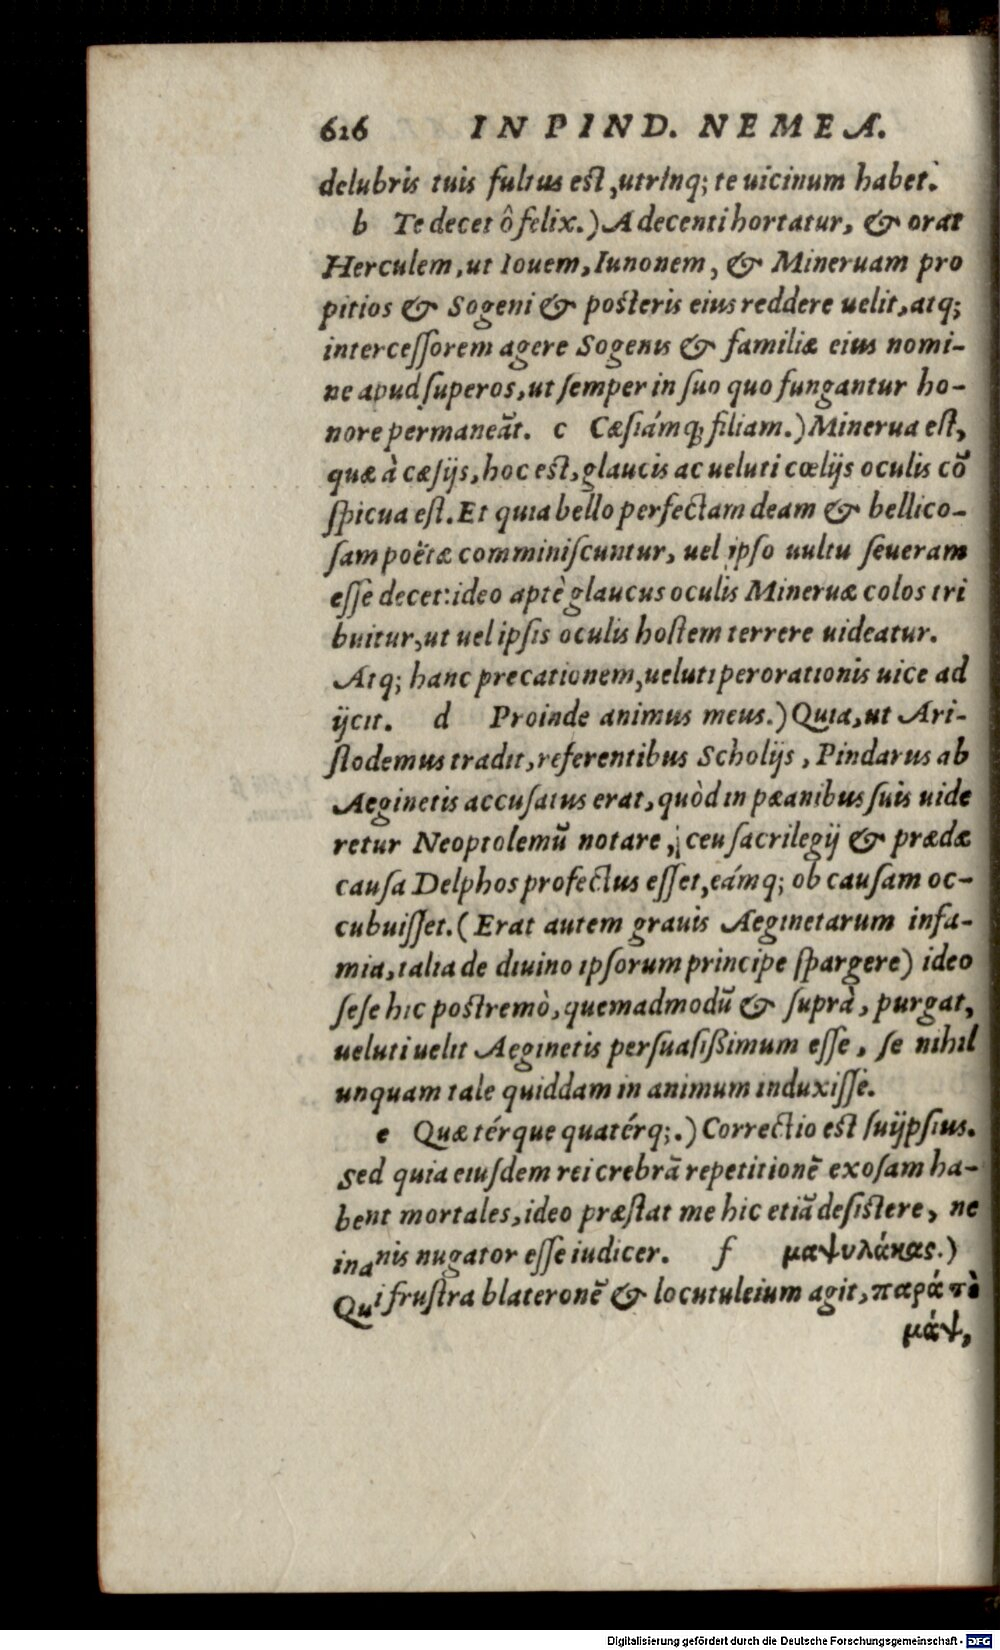 626 IN PIND. NEMEA.
delubris tuis fultus est, utrinq; te uicinum habet.
b Te decet ô felix.) A decenti hortatur, & orat
Herculem, ut Iouem, Iunonem, & Mineruam pro
pitios & Sogeni & posteris eius reddere uelit, atq;
intercessorem agere Sogenis & familiæ eius nomi-
ne apud superos, ut semper in suo quo fungantur ho-
nore permaneãt. c Cæsiámq; filiam.) Minerua est,
quæ à cæsijs, hoc est, glaucis ac ueluti cœlijs oculis cõ
spicua est. Et quia bello perfectam deam & bellico-
sam poëtæ comminiscuntur, uel ipso uultu seueram
esse decet: ideo aptè glaucus oculis Mineruæ colos tri
buitur, ut uel ipsis oculis hostem terrere uideatur.
Atq; hanc precationem, ueluti perorationis uice ad
ijcit. d Proinde animus meus.) Quia, ut Ari-
stodemus tradit, referentibus Scholijs, Pindarus ab
Aeginetis accusatus erat, quòd in pæanibus suis uide
retur Neoptolemũ notare, ceu sacrilegij & prædæ
causa Delphos profectus esset, eámq; ob causam oc-
cubuisset. (Erat autem grauis Aeginetarum infa-
mia, talia de diuino ipsorum principe spargere) ideo
sese hic postremò, quemadmodũ & suprà, purgat,
ueluti uelit Aeginetis persuasißimum esse, se nihil
unquam tale quiddam in animum induxisse.
e Quæ térque quatérq;.) Correctio est suijpsius.
Sed quia eiusdem rei crebrã repetitionẽ exosam ha-
bent mortales, ideo præstat me hic etiã desistere, ne
inanis nugator esse iudicer. f μαψυλάκας.)
Qui frustra blateronẽ & locutuleium agit, παρά τὸ
μάψ,